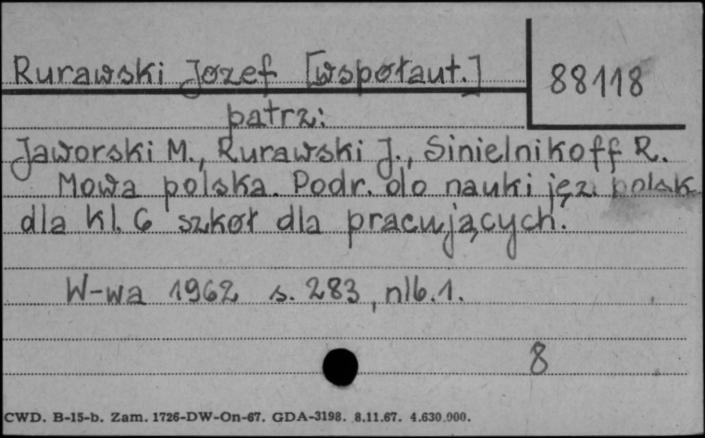 Rurawski Józef [współaut.]
88118
patrz:
Jaworski M., Rurawski J., Sinielnikoff R.
Mowa polska. Podr. do nauki jęz. polsk.
dla kl. 6 szkół dla pracujących.
W-wa 1962 s. 283, nlb. 1.
8
CWD. B-15-b. Zam. 1726-DW-On-67. GDA-3198. 8.11.67. 4.630.000.